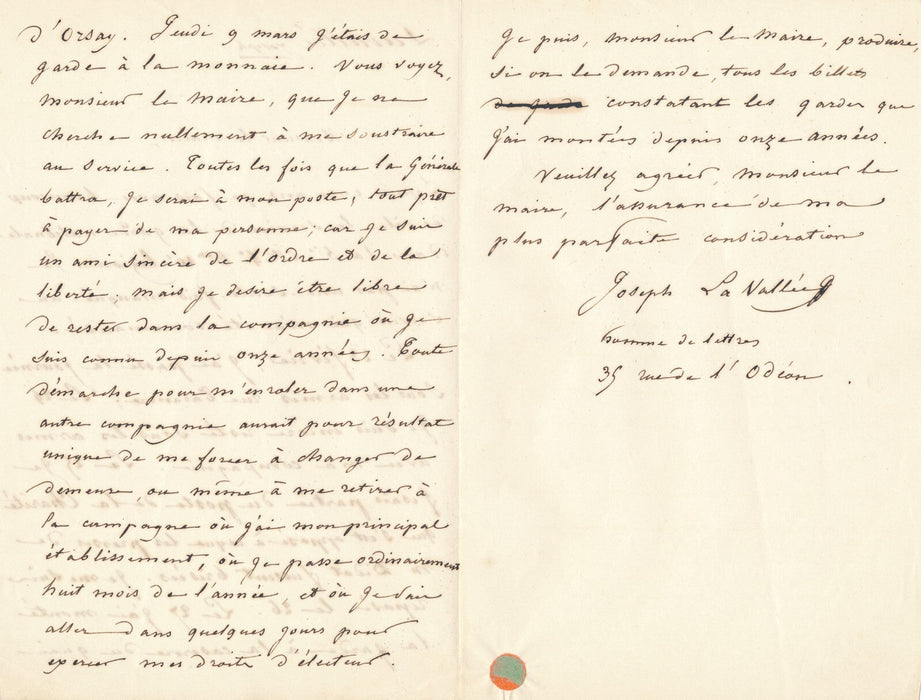 d'Orsay. Jeudi 9 mars j'étais de
garde à la monnaie. Vous voyez,
monsieur le maire, que je ne
cherche nullement à me soustraire
au service. Toutes les fois que la Générale
battra, je serai à mon poste, tout prêt
à payer de ma personne; car je suis
un ami sincère de l'ordre et de la
liberté; mais je desire être libre
de rester dans la compagnie où je
suis connu depuis onze années. Toute
démarche pour m'enroler dans une
autre compagnie aurait pour résultat
unique de me forcer à changer de
demeure ou même à me retirer à
la campagne où j'ai mon principal
établissement, où je passe ordinairement
huit mois de l'année, et où je dois
aller dans quelques jours pour
exercer mes droits d'électeur.
Je puis, monsieur le maire, produire,
si on le demande, tous les billets
constatant les gardes que
j'ai montées depuis onze années.
Veuillez agréer, monsieur le
maire, l'assurance de ma
plus parfaite considération
Joseph La Vallée
homme de lettres
35 rue de l'Odéon.